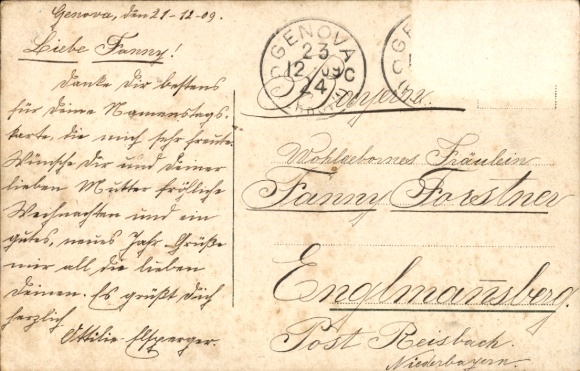 Genova, den 21-12-09.
Liebe Fanny!
Danke Dir bestens
für Deine Namenstags-
karte, die mich sehr freute.
Wünsche Dir und Deiner
lieben Mutter fröhliche
Weihnachten und ein
gutes, neues Jahr. Grüße
mir all, die lieben
Deinen. Es grüßt Dich
herzlich
Ottilie Elsperger.
GENOVA
23
12 09
Bayern.
Wohlgebornes Fräulein
Fanny Forstner
Englmannsberg.
Post Reisbach.
Niederbayern.